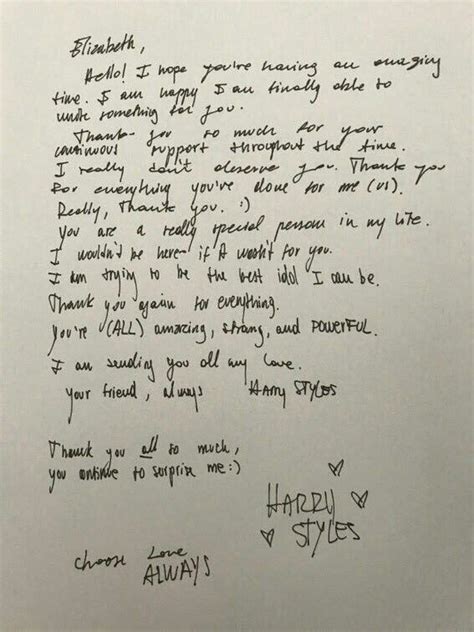 Elizabeth,
Hello! I hope you're having an amazing
time. I am happy I am finally able to
write something for you.
Thank you so much for your
continuous support throughout the time.
I really don't deserve you. Thank you
for everything you've done for me (us).
Really, Thank you. :)
You are a really special person in my life.
I wouldn't be here if it wasn't for you.
I am trying to be the best idol I can be.
Thank you again for everything.
You're (ALL) amazing, strong, and POWERFUL.
I am sending you all my love.
your friend, always Harry STYLES
Thank you all so much,
you continue to surprise me:)
HARRY
STYLES
choose Love
ALWAYS